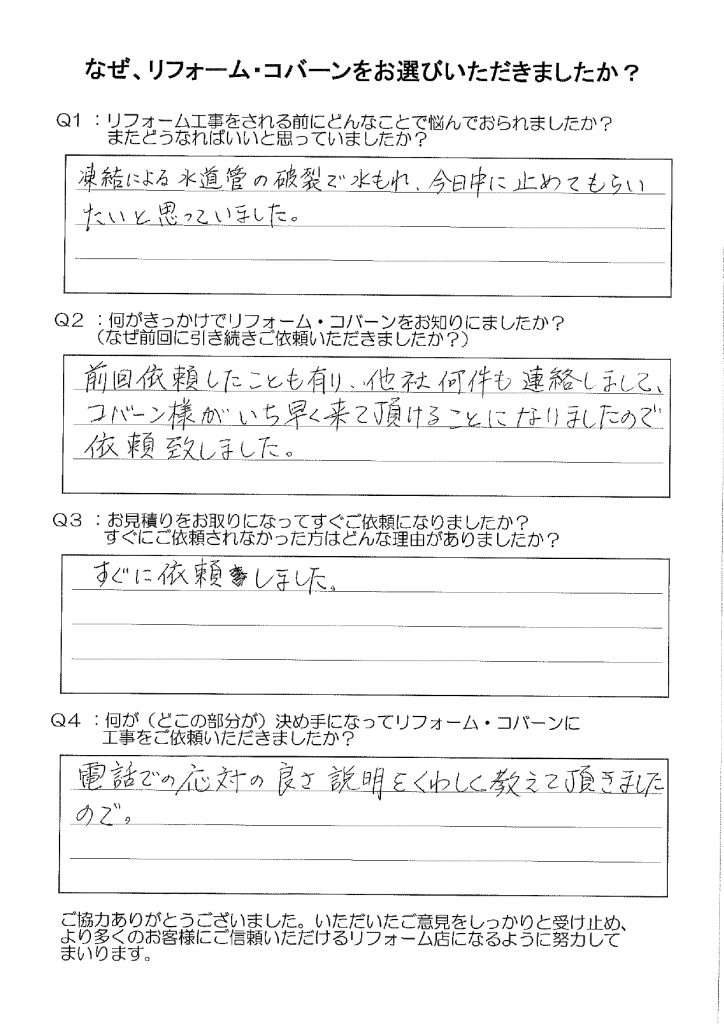 なぜ、リフォーム・コバーンをお選びいただきましたか？
Q1 ：リフォーム工事をされる前にどんなことで悩んでおられましたか？
またどうなればいいと思っていましたか？
凍結による水道管の破裂で水もれ、今日中に止めてもらい
たいと思っていました。
Q2 ：何がきっかけでリフォーム・コバーンをお知りにましたか？
（なぜ前回に引き続きご依頼いただきましたか？）
前回依頼したことも有り、他社何件も連絡しまして、
コバーン様がいち早く来て頂けることになりましたので
依頼致しました。
Q3 ：お見積りをお取りになってすぐご依頼になりましたか？
すぐにご依頼されなかった方はどんな理由がありましたか？
すぐに依頼しました。
Q4 ：何が（どこの部分が）決め手になってリフォーム・コバーンに
工事をご依頼いただきましたか？
電話での応対の良さ説明をくわしく教えて頂きました
ので。
ご協力ありがとうございました。いただいたご意見をしっかりと受け止め、
より多くのお客様にご信頼いただけるリフォーム店になるように努力して
まいります。